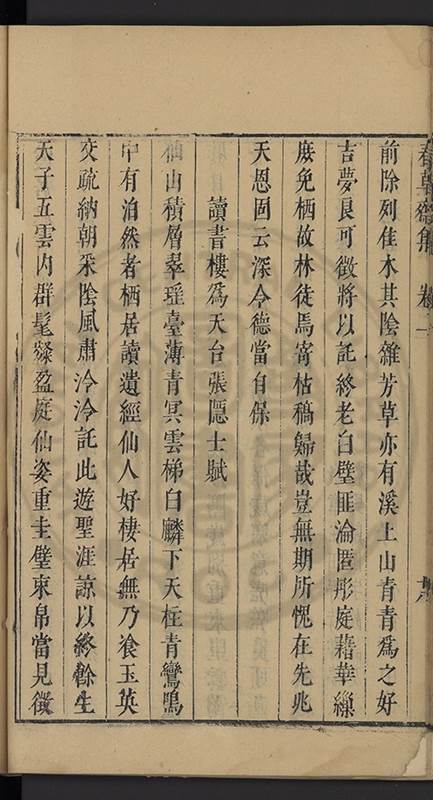 前除列佳木其陰雜芳草亦有溪上山青青爲之好
吉夢良可徵將以託終老白璧匪淪匿彤庭藉華繅
庻免栖故林徒焉寄枯稿歸哉豈無期所愧在先兆
天恩固云深令德當自保
讀書樓爲天台張隱士賦
仙山積層翠瑶臺薄青冥雲梯白麟下天柱青鸞鳴
中有泊然者栖居讀遺經仙人好棲居無乃飡玉英
交疏納朝采陰風肅泠泠託此遊聖涯諒以終餘生
天子五雲内群髦粲盈庭仙姿重圭璧束帛當見徵
卷一